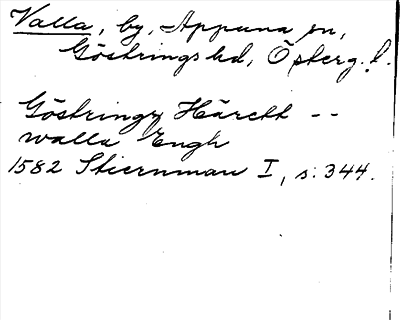 Valla, by, Appuna sn,
Göstrings hd, Österg. l.
Göstringz Härett --
walla Engh
1582 Stiernman I, s. 344.